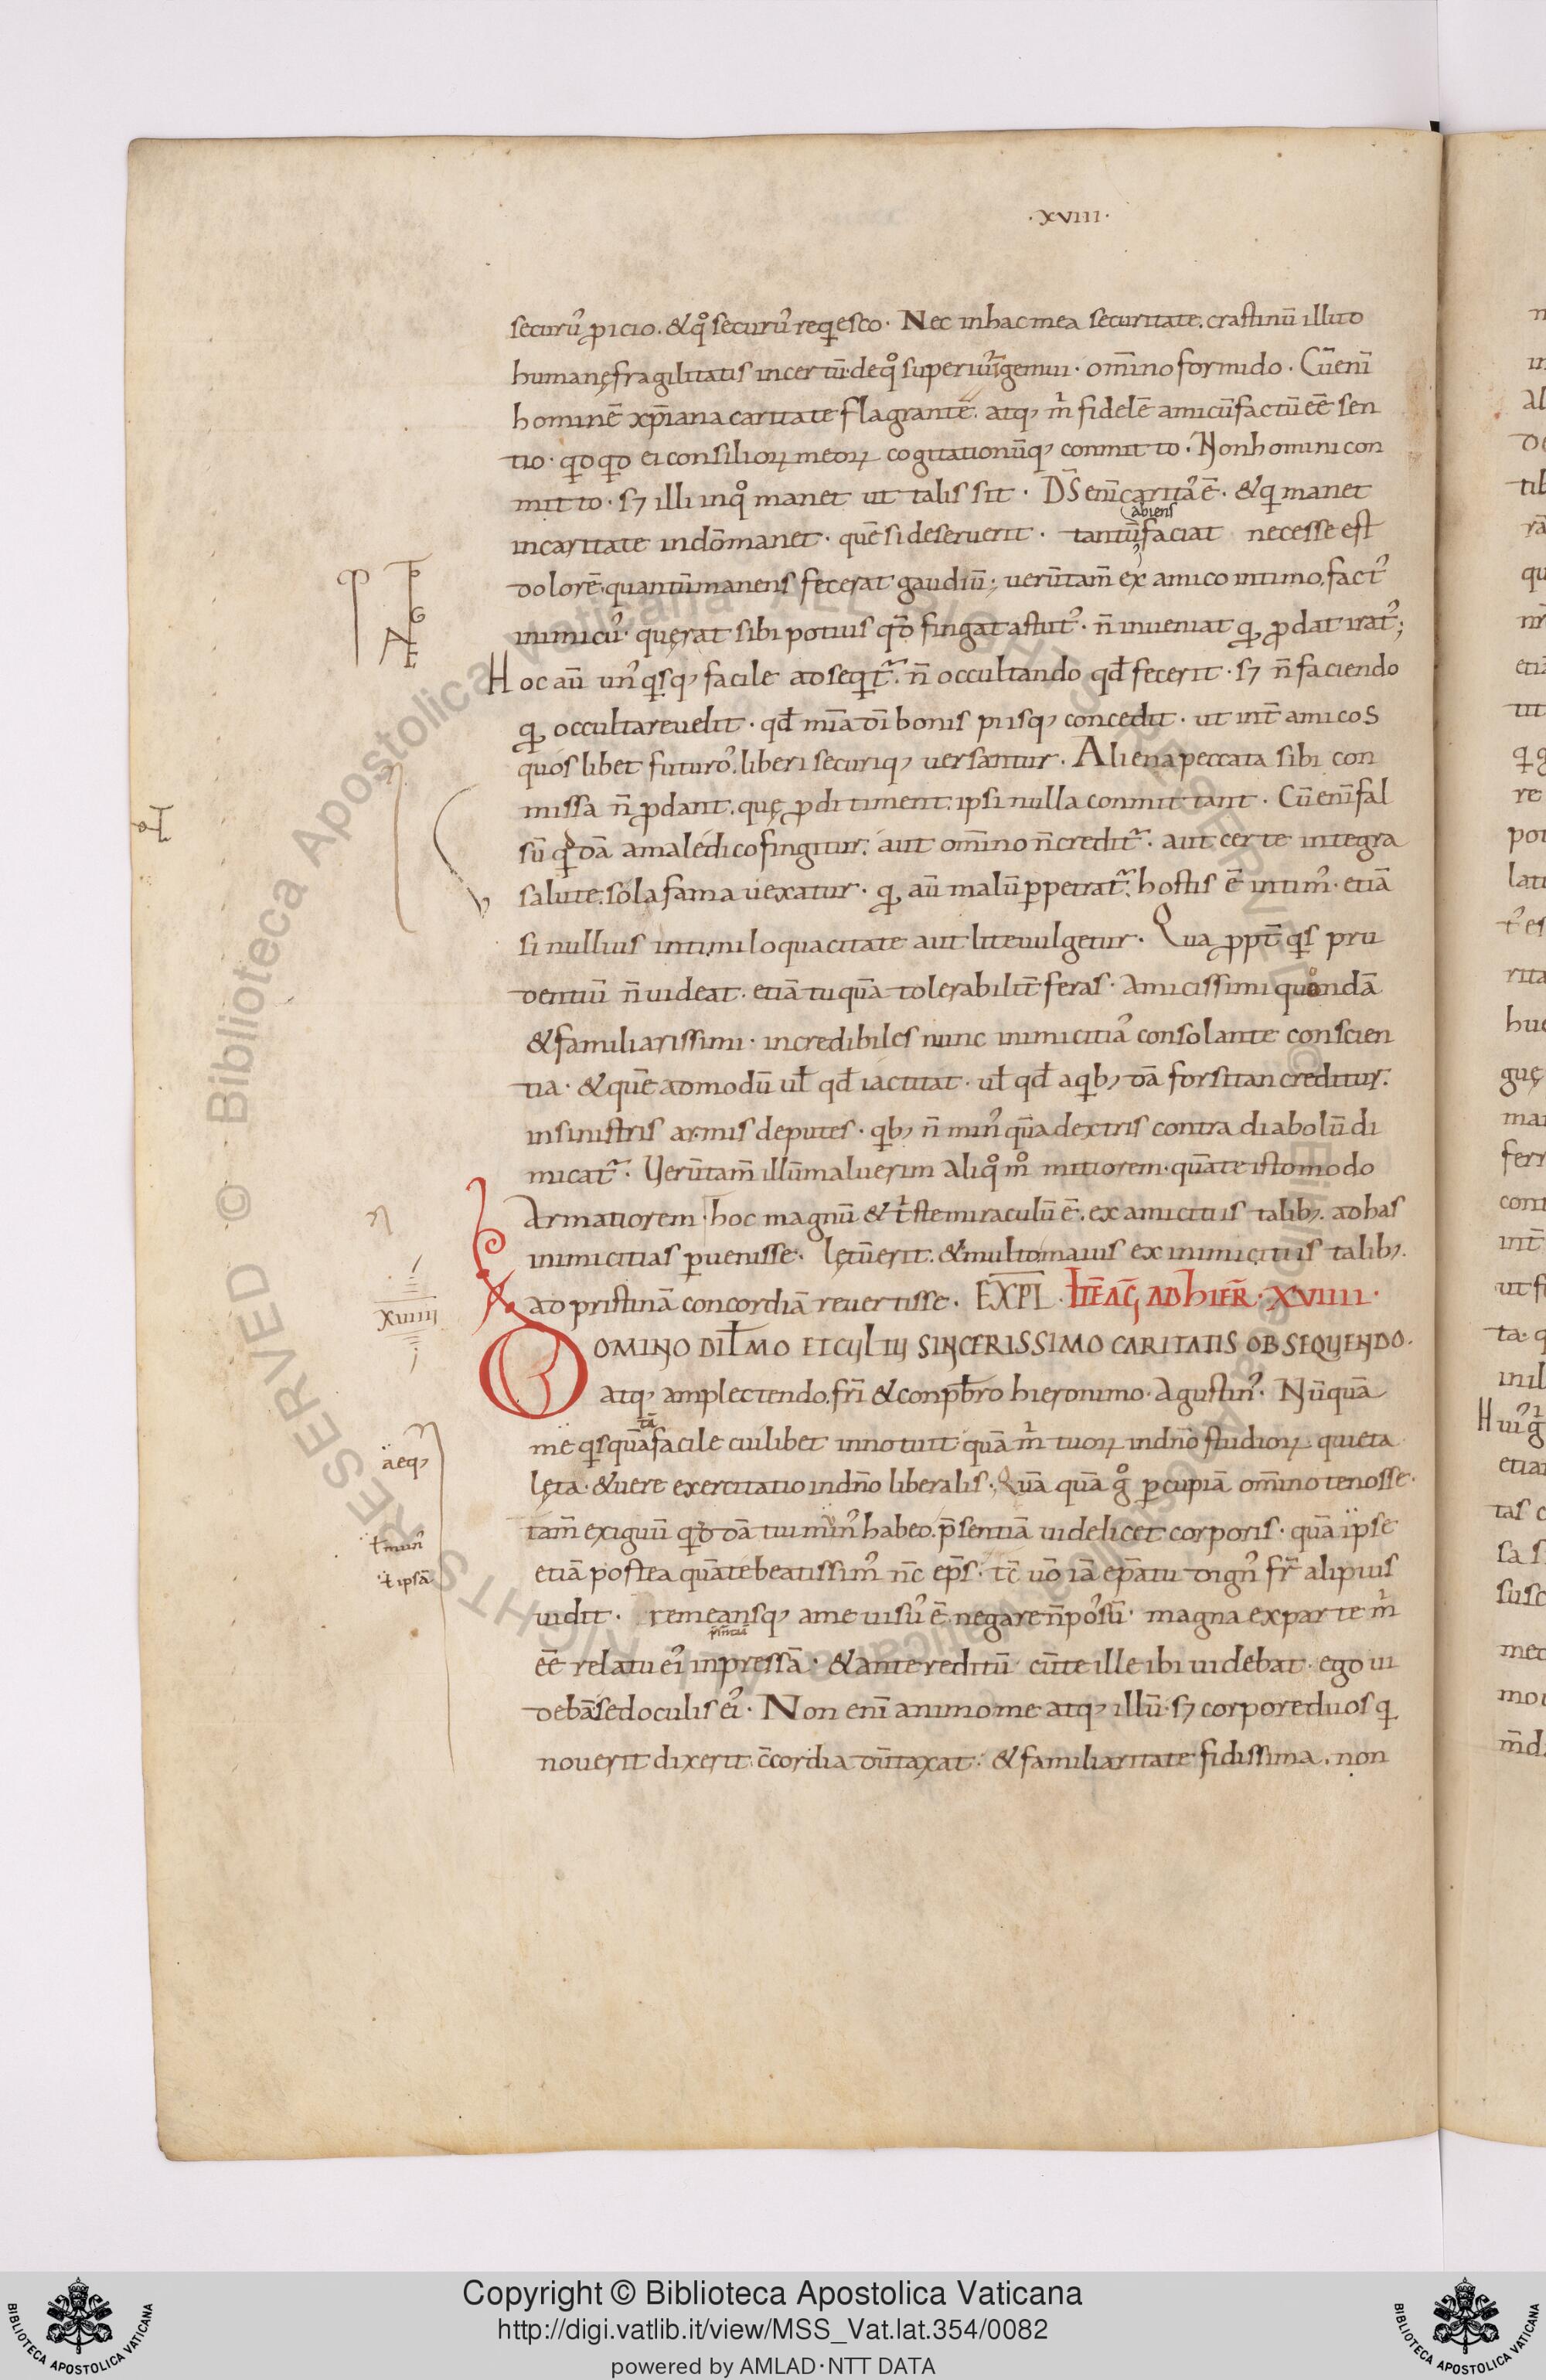 ·XVIII·
securu᾽ ꝓicio. & q̊ securu᾽ req̣esco. Nec in hac mea securitate. crastinū illud
humanę fragilitatis incertū. de q̊ superiu᾽ ingemui. om̄ino formido. Cū enī
hominē xp̄iana caritate flagrantē. atq; m̄ fidelē amicū factū eē sen
tio. qđ qđ ei consilioꝝ meoꝝ cogitationūq; conmitto. Non homini con
mitto. sꝫ illi in q̊ manet ut talis sit. DS̄ enī carita᾽ ē. & q manet
in caritate in dō manet. quē si deseruerit. tantū abiens faciat necesse est
dolorē. quantū manens fecerat gaudiū; uerūtam̄ ex amico intimo. fact᾽
inimicu᾽. quęrat sibi potius qđ fingat astut᾽. n̄ inueniat qđ ꝓdat irat᾽;
Hoc aū un᾽ qsq; facile adseqt̄. n̄ occultando qđ fecerit. sꝫ n̄ faciendo
qđ occultare uelit. qđ mīa dī bonis piisq; concedit. ut int̄ amicos
quoslibet futuro᾽. liberi securiq; uersantur. Aliena peccata sibi con
missa n̄ ꝓdant. quę ꝓdi timent. ipsi nulla conmittant. Cū enī fal
sū qđdā a maledico fingitur. aut om̄ino n̄ credit̄. aut certe integra
salute. sola fama uexatur. qđ aū malū ꝑpetrat̄. hostis ē intim᾽. etiā
si nullius intimi loquacitate aut lite uulgetur. Qua ꝓpt̄ qs pru
dentiū n̄ uideat. etiā tu quā tolerabilit̄ feras. Amicissimi quondā
& familiarissimi. incredibiles nunc inimicitia᾽ consolante conscien
tia. & quē admodū ul̄ qđ iactitat. ul̄ qđ a qb; dā forsitan creditur.
in sinistris armis deputes. qb; n̄ min᾽ quā dextris contra diabolū di
micat̄. Uerūtam̄ illū maluerim aliq̊ m̊ mitiorem. quā te isto modo
Armatiorem. hoc magnū & tste miraculū ē. ex amicitiis talib;. ad has
inimicitias ꝑuenisse. lętū erit. & multo maius ex inimicitiis talib;.
XVIIII
ad pristinā concordiā reuertisse. EXPL. ITĒ AḠ AD HIER̄. XVIIII.
DOMINO DIL̄MO ET CULTU SINCERISSIMO CARITATIS OBSEQUENDO.
atq; amplectendo. frī & conpb̄ro hieronimo. Agustin᾽. Nūquā
aeq;
mē qsquā tā facile cuilibet innotuit quā m̄ tuoꝝ in dn̄o studioꝝ quieta
lęta. & uere exercitatio in dn̄o liberalis. Quā quā g̊ ꝑcupiā om̄ino te nosse.
tam̄ exiguū qđ dā tui min᾽ habeo. p̄sentiā uidelicet corporis. quā ipse
ł ipsā
etiā postea quā te beatissim᾽ n̄c ep̄s. tc̄ uō iā ep̄atu dign᾽ fr̄ alipius
uidit. remeansq; a me uisu᾽ ē. negare n̄ po᾽sū. magna ex parte m̄
eē relatu ei᾽ inpressā. & ante reditū cū te ille ibi uidebat. ego ui
debā sed oculis ei᾽. Non enī animo me atq; illū. sꝫ corpore duos q
nouerit dixerit. c̄cordia dūtaxat. & familiaritate fidissima. non
Copyright © Biblioteca Apostolica Vaticana
http://digi.vatlib.it/view/MSS_Vat.lat.354/0082
powered by AMLAD·NTT DATA